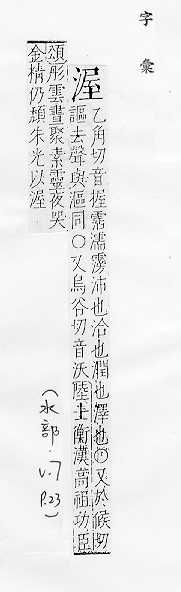 字彙
渥
乙角切音握霑濡霶沛也洽也潤也澤也○又於候切
謳去聲與漚同○又烏谷切音沃陸士衡漢高祖功臣
頌彤雲晝聚素靈夜哭
金精仍頹朱光以渥
(水部. V.7 P.23)